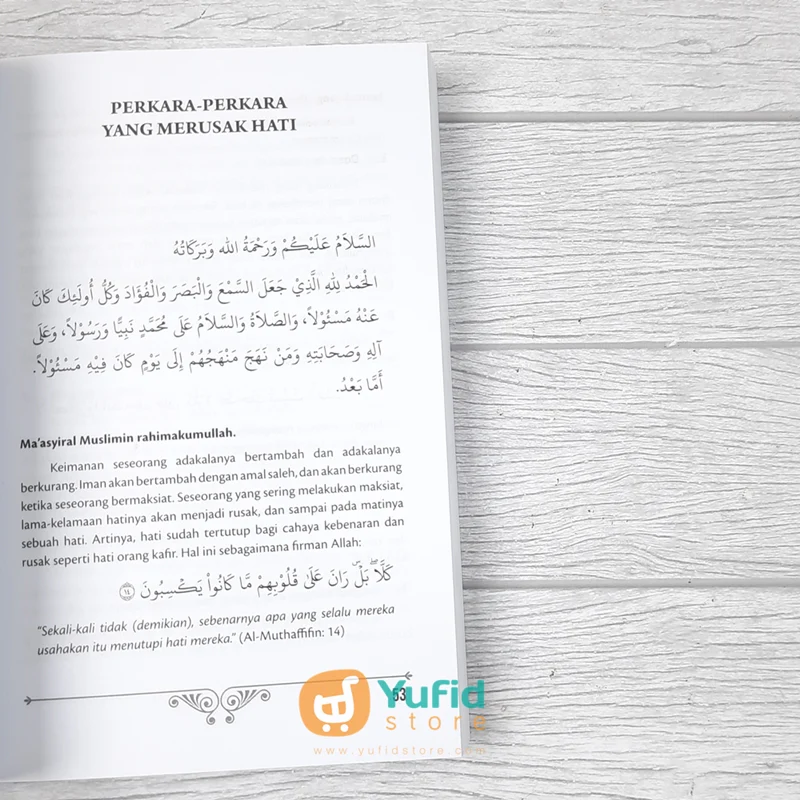 PERKARA-PERKARA
YANG MERUSAK HATI
السَّلاَمُ عَلَيْكُمْ وَرَحْمَةُ الله وَبَرَكَاتُهُ
الْحَمْدُ لِلهِ الَّذِيْ جَعَلَ السَّمْعَ وَالْبَصَرَ وَالْفُؤَادَ وَكُلُّ أُولَئِكَ كَانَ
عَنْهُ مَسْئُولاً، وَالصَّلاَةُ وَالسَّلاَمُ عَلَى مُحَمَّدٍ نَبِيًّا وَرَسُوْلاً، وَعَلَى
آلِهِ وَصَحَابَتِهِ وَمَنْ نَهَجَ مَنْهَجُهُمْ إِلَى يَوْمٍ كَانَ فِيْهِ مَسْئُوْلاً.
أَمَّا بَعْدُ.
Ma'asyiral Muslimin rahimakumullah.
Keimanan seseorang adakalanya bertambah dan adakalanya
berkurang. Iman akan bertambah dengan amal saleh, dan akan berkurang
ketika seseorang bermaksiat. Seseorang yang sering melakukan maksiat,
lama-kelamaan hatinya akan menjadi rusak, dan sampai pada matinya
sebuah hati. Artinya, hati sudah tertutup bagi cahaya kebenaran dan
rusak seperti hati orang kafir. Hal ini sebagaimana firman Allah:
كَلَّا ۖ بَلْ ۜ رَانَ عَلَىٰ قُلُوبِهِمْ مَّا كَانُوا۟ يَكْسِبُونَ ١٤
"Sekali-kali tidak (demikian), sebenarnya apa yang selalu mereka
usahakan itu menutupi hati mereka." (Al-Muthaffifin: 14)
53
Yufid
store
www.yufidstore.com